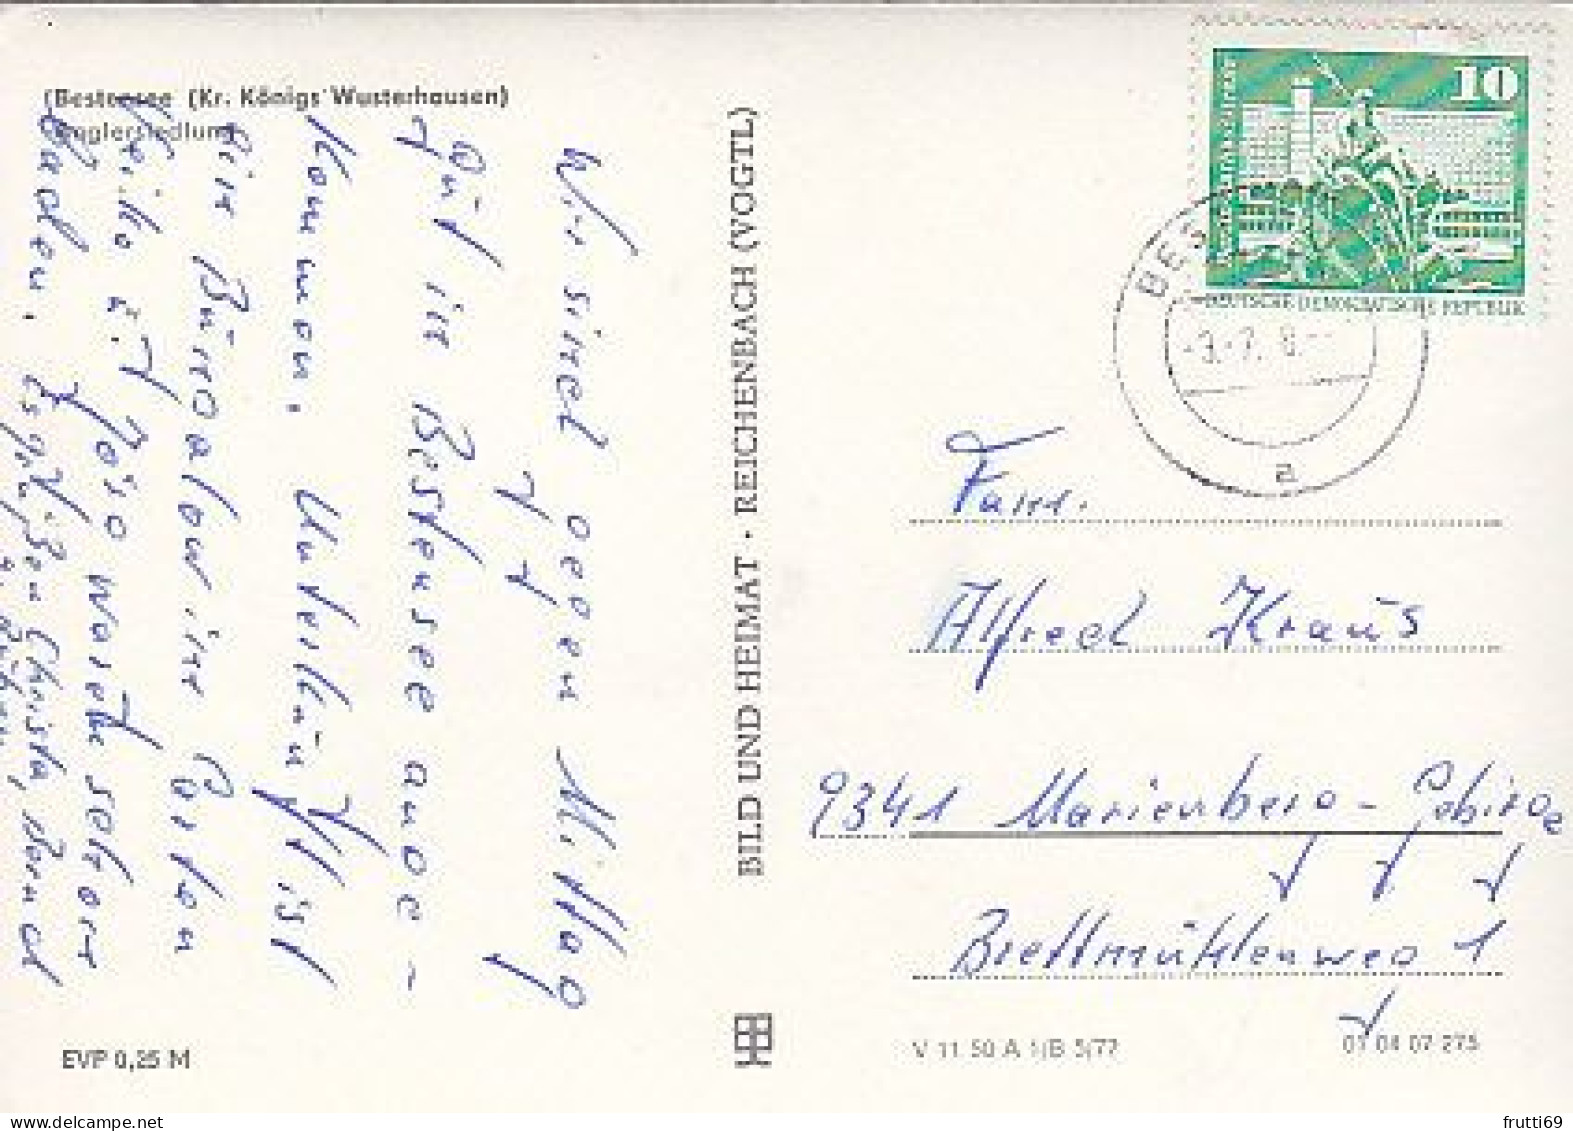 (Bestensee (Kr. Königs Wusterhausen)
Anglersiedlung
Wir sind gegen Mittag
gut in Bestensee ange-
kommen. Unterkunft ist
ein Bungalow im Garten
Heiko u.
baden.
Christa,
EVP 0,25 M
BILD UND HEIMAT · REICHENBACH (VOGTL)
10
DEUTSCHE DEMOKRATISCHE REPUBLIK
BES
a
Fam.
Alfred Kraus
9341 Marienberg-Gebirge
Brettmühlenweg 1
V 11 50 A 1/B 5/77
01 04 07 275
frutti69